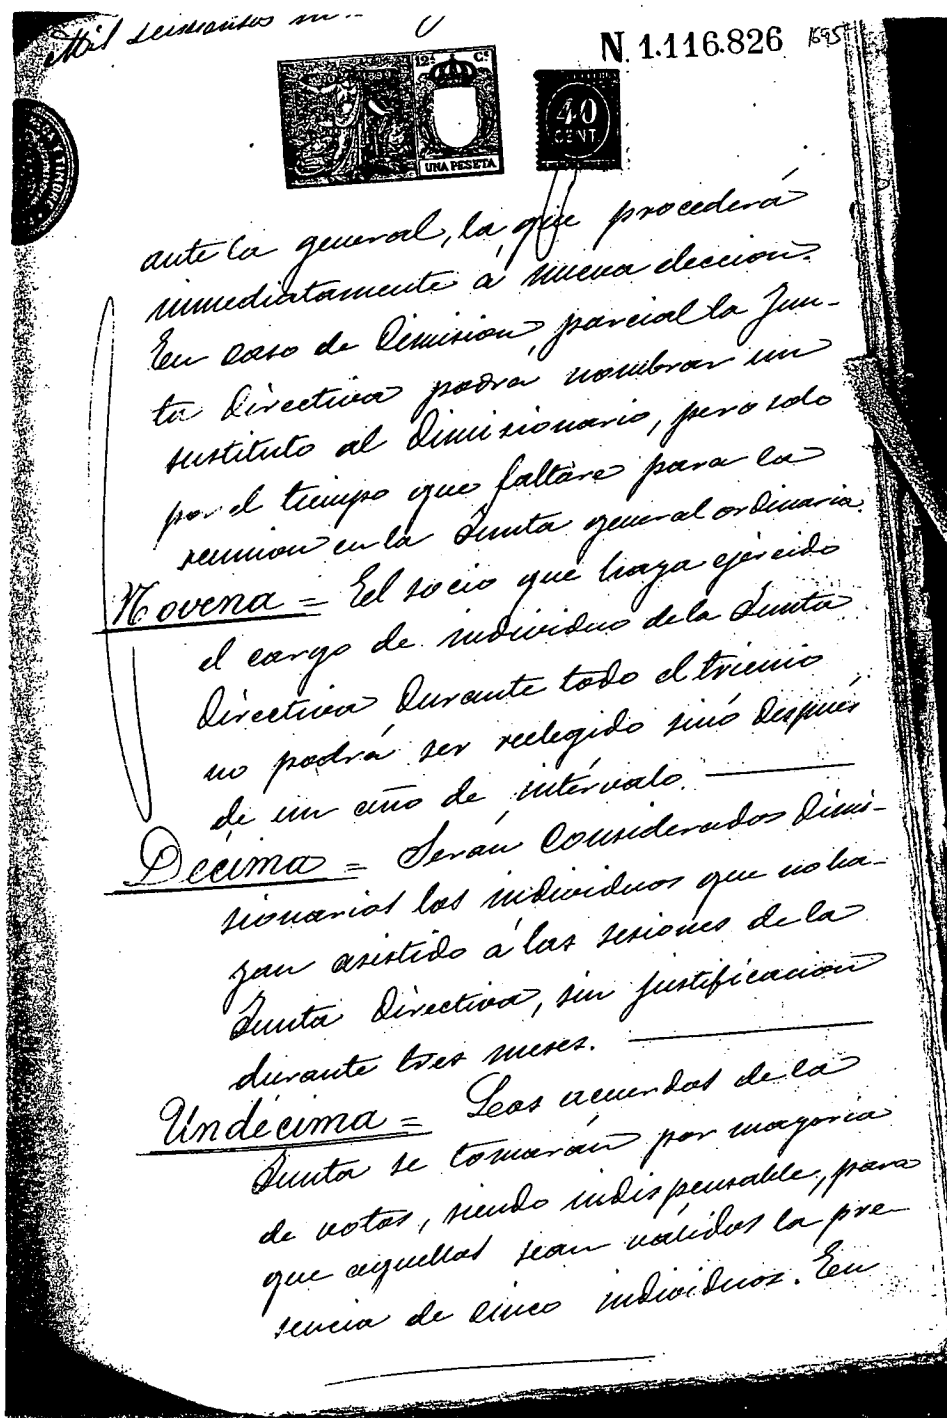 Mil seiscientos
N. 1.116.826 1695
12ª Cª
UNA PESETA
40
CENT
ante la general, la que procederá
inmediatamente á nueva eleccion.
En caso de dimision parcial la Jun-
ta Directiva podrá nombrar un
sustituto al dimisionario, pero solo
por el tiempo que faltare para la
reunion en la Junta general ordinaria.
Novena = El socio que haya ejercido
el cargo de individuo de la Junta
Directiva durante todo el trienio
no podrá ser reelegido sinó después
de un año de intérvalo.
Décima = Serán considerados dimi-
sionarios los individuos que no ha-
yan asistido á las sesiones de la
Junta Directiva, sin justificacion
durante tres meses.
Undécima = Los acuerdos de la
Junta se tomarán por mayoria
de votos, siendo indispensable, para
que aquellos sean válidos la pre-
sencia de cinco individuos. En